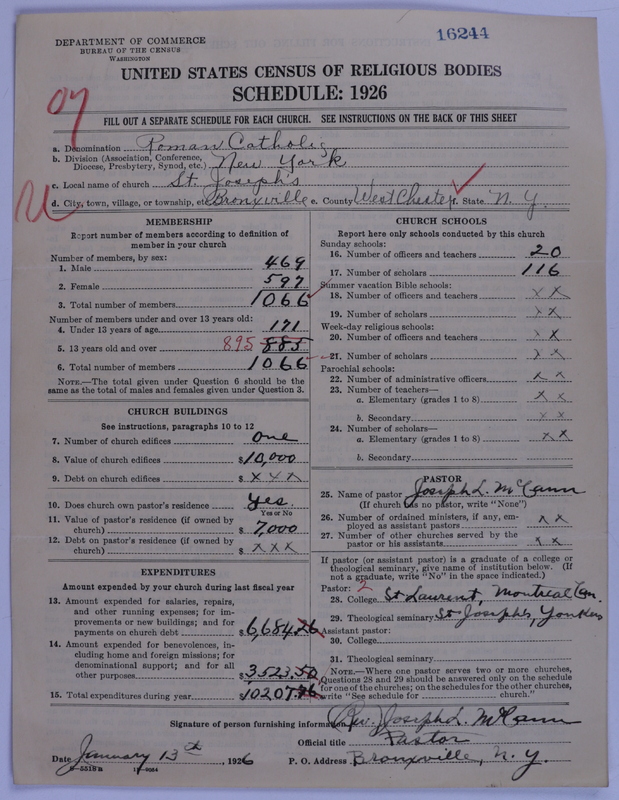 16244
DEPARTMENT OF COMMERCE
BUREAU OF THE CENSUS
WASHINGTON
UNITED STATES CENSUS OF RELIGIOUS BODIES
SCHEDULE: 1926
FILL OUT A SEPARATE SCHEDULE FOR EACH CHURCH. SEE INSTRUCTIONS ON THE BACK OF THIS SHEET
a. Denomination Roman Catholic
b. Division (Association, Conference, Diocese, Presbytery, Synod, etc.) New York
c. Local name of church St. Joseph's
d. City, town, village, or township, etc. Bronxville e. County West Chester f. State N. Y.
MEMBERSHIP
Report number of members according to definition of
member in your church
Number of members, by sex:
1. Male 469
2. Female 597
3. Total number of members 1066
Number of members under and over 13 years old:
4. Under 13 years of age 171
5. 13 years old and over 895 885
6. Total number of members 1066
NOTE.—The total given under Question 6 should be
same as the total of males and females given under Question 3.
CHURCH BUILDINGS
See instructions, paragraphs 10 to 12
7. Number of church edifices one
8. Value of church edifices $10,000
9. Debt on church edifices $ X X X
10. Does church own pastor's residence Yes.
Yes or No
11. Value of pastor's residence (if owned by
church) $ 7,000
12. Debt on pastor's residence (if owned by
church) $ X X X
EXPENDITURES
Amount expended by your church during last fiscal year
13. Amount expended for salaries, repairs,
and other running expenses; for im-
provements or new buildings; and for
payments on church debt $6,684.26
14. Amount expended for benevolences, in-
cluding home and foreign missions; for
denominational support; and for all
other purposes $3523.50
15. Total expenditures during year $10207.76
CHURCH SCHOOLS
Report here only schools conducted by this church
Sunday schools:
16. Number of officers and teachers 20
17. Number of scholars 116
Summer vacation Bible schools:
18. Number of officers and teachers X X
19. Number of scholars X X
Week-day religious schools:
20. Number of officers and teachers X X
21. Number of scholars X X
Parochial schools:
22. Number of administrative officers X X
23. Number of teachers—
a. Elementary (grades 1 to 8) X X
b. Secondary X X
24. Number of scholars—
a. Elementary (grades 1 to 8) X X
b. Secondary
PASTOR
25. Name of pastor Joseph L. McCann
(If church has no pastor, write "None")
26. Number of ordained ministers, if any, em-
ployed as assistant pastors X X
27. Number of other churches served by the
pastor or his assistants X X
If pastor (or assistant pastor) is a graduate of a college or
theological seminary, give name of institution below. (If
not a graduate, write "No" in the space indicated.)
Pastor: 2
28. College St Laurent, Montreal Can.
29. Theological seminary St Joseph's, Yonkers
Assistant pastor:
30. College
31. Theological seminary
NOTE.—Where one pastor serves two or more churches,
Questions 28 and 29 should be answered only on the schedule
for one of the churches; on the schedules for the other churches,
write "See schedule for church."
Signature of person furnishing information Rev. Joseph L. McCann
Official title Pastor
Date January 13th, 1926 P. O. Address Bronxville, N. Y.